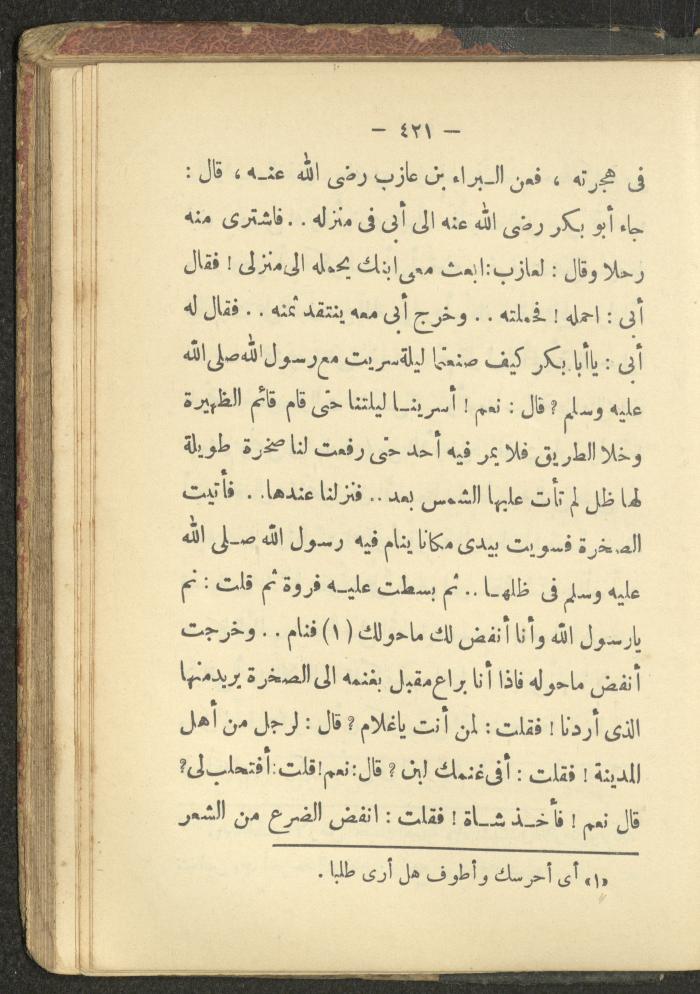 — ٤٢١ —
فى هجرته ، فعن البراء بن عازب رضى الله عنه ، قال :
جاء أبو بكر رضى الله عنه الى أبى فى منزله . . فاشترى منه
رحلا وقال : لعازب : ابعث معى ابنك يحمله الى منزلى ! فقال
أبى : احمله ! فحملته . . وخرج أبى معه ينتقد ثمنه . . فقال له
أبى : ياأبا بكر كيف صنعتما ليلة سريت مع رسول الله صلى الله
عليه وسلم ؟ قال : نعم ! أسرينا ليلتنا حتى قام قائم الظهيرة
وخلا الطريق فلا يمر فيه أحد حتى رفعت لنا صخرة طويلة
لها ظل لم تأت عليها الشمس بعد . . فنزلنا عندها . . فأتيت
الصخرة فسويت بيدى مكانا ينام فيه رسول الله صلى الله
عليه وسلم فى ظلها . . ثم بسطت عليه فروة ثم قلت : نم
يارسول الله وأنا أنفض لك ماحولك (١) فنام . . وخرجت
أنفض ماحوله فاذا أنا براع مقبل بغنمه الى الصخرة يريد منها
الذى أردنا ! فقلت : لمن أنت ياغلام ؟ قال : لرجل من أهل
المدينة ! فقلت : أفى غنمك لبن ؟ قال : نعم ! قلت : أفتحلب لى ؟
قال نعم ! فأخذ شاة ! فقلت : انفض الضرع من الشعر
«١» أى أحرسك وأطوف هل أرى طلبا .